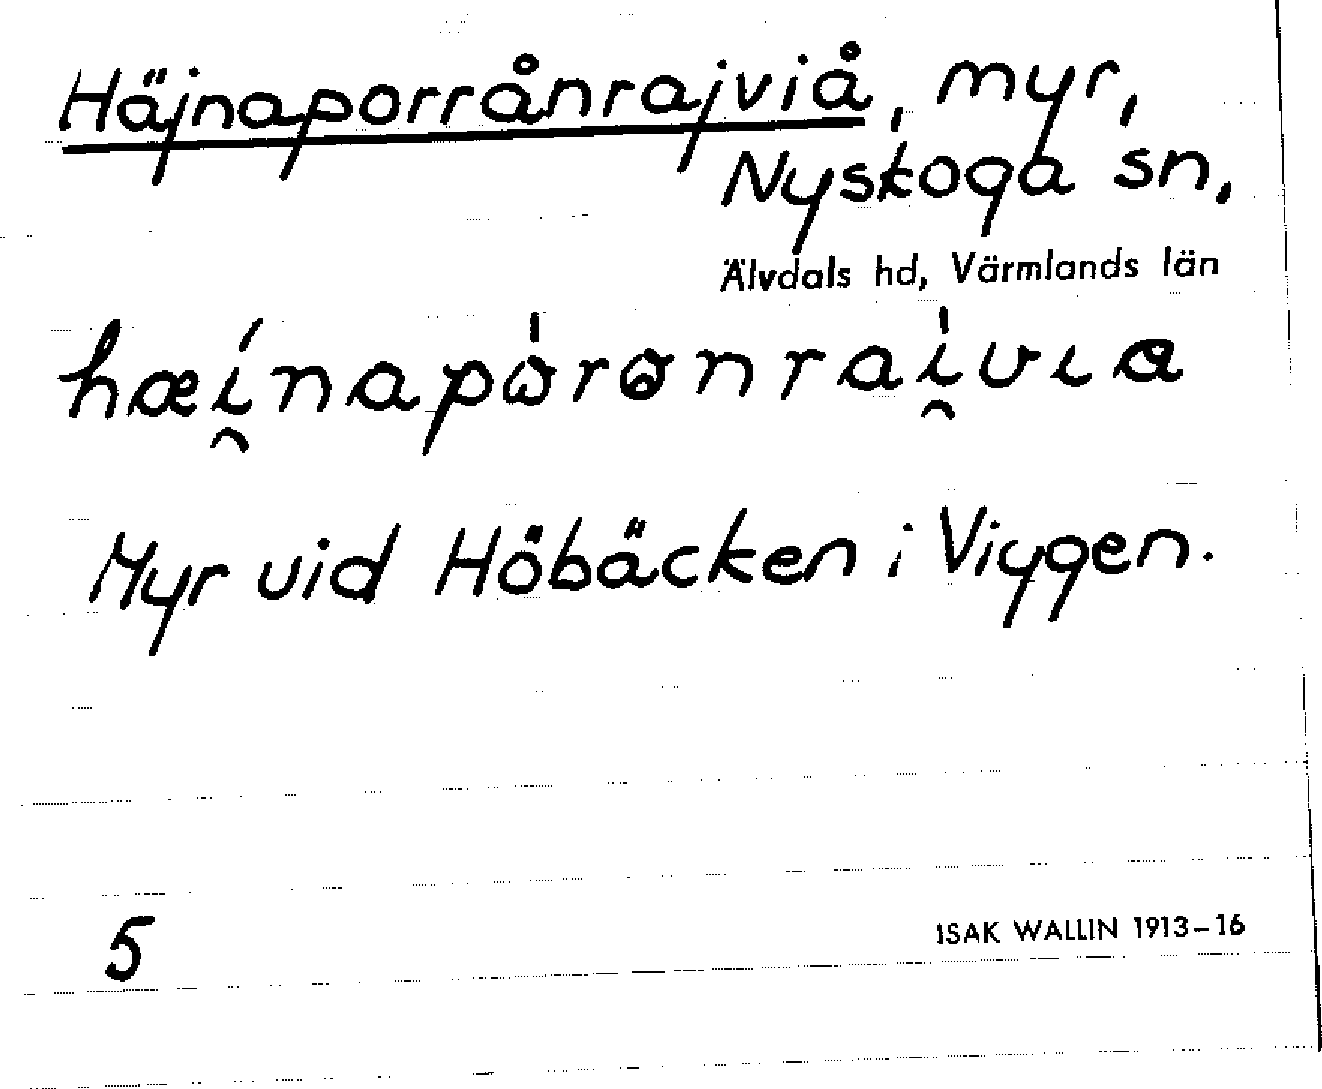 Häjnaporrånrajviå, myr,
Nyskoga sn,
Älvdals hd, Värmlands län
Myr vid Höbäcken i Viggen.
5
ISAK WALLIN 1913–16